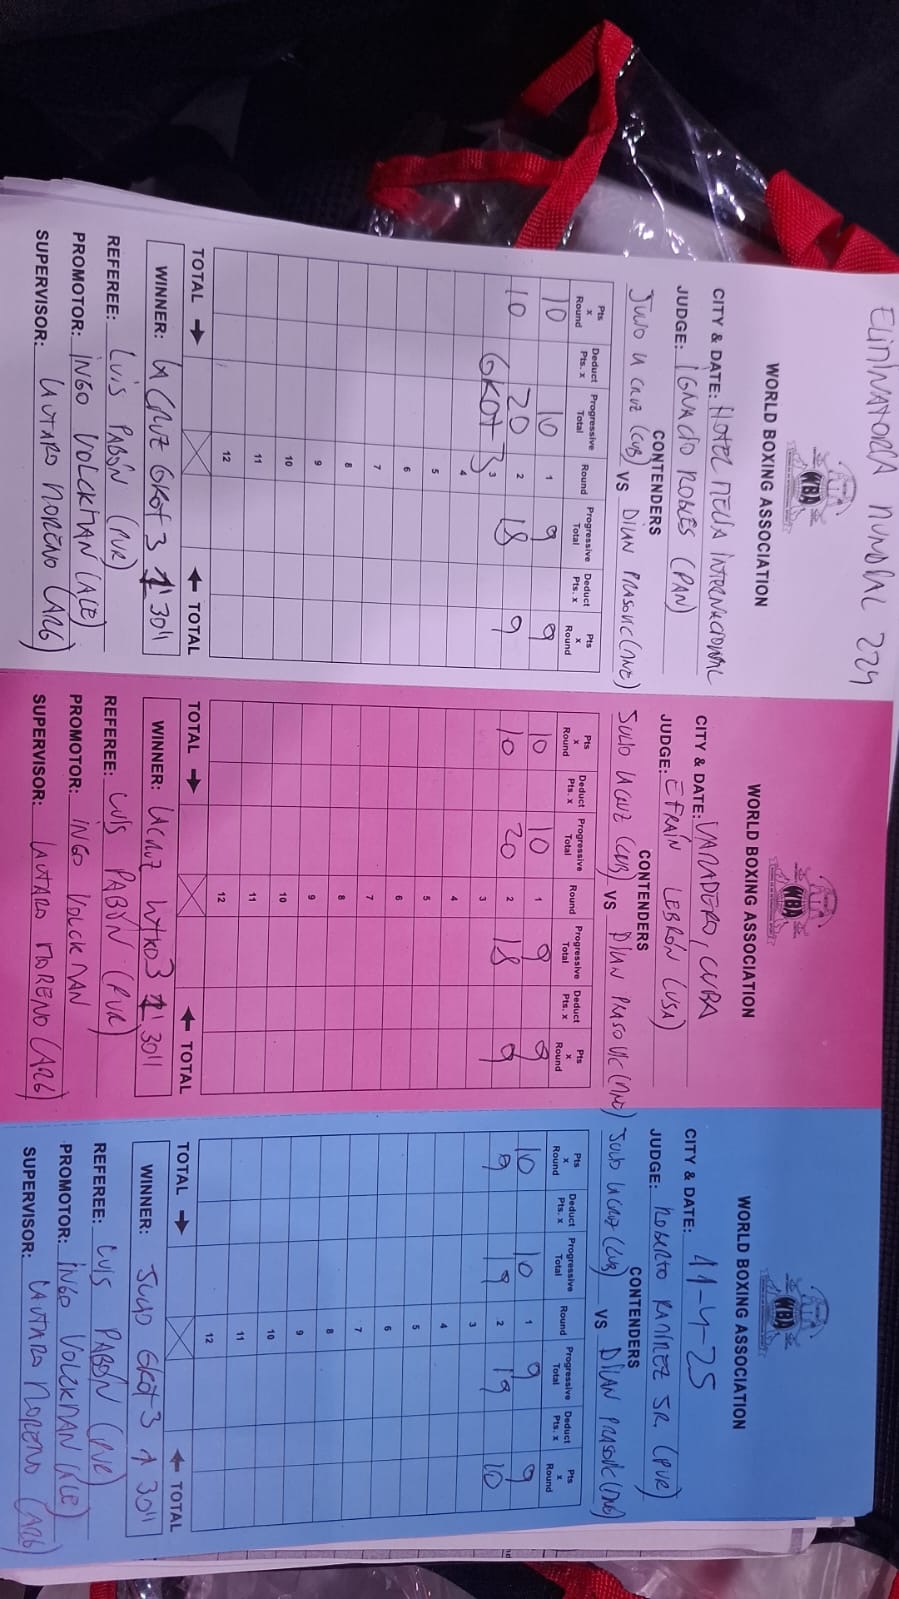 ELIMINATORIA MUNDIAL 224
WBA
WORLD BOXING ASSOCIATION
CITY & DATE: HOTEL MELIA INTERNACIONAL
JUDGE: IGNACIO ROBLES (PAN)
CONTENDERS
JULIO LA CRUZ (CUB) VS DILAN PRASOVIC (MNE)
Pts x Round Deduct Pts. x Progressive Total Round Progressive Total Deduct Pts. x Pts x Round
10 10 1 9 9
10 20 2 18 9
GKOT 3 3
4
5
6
7
8
9
10
11
12
TOTAL → ← TOTAL
WINNER: LA CRUZ GKOT 3 1' 30''
REFEREE: LUIS PABÓN (PUR)
PROMOTOR: INGO VOLCKMAN (ALE)
SUPERVISOR: LAUTARO MORENO (ARG)
WBA
WORLD BOXING ASSOCIATION
CITY & DATE: VARADERO, CUBA
JUDGE: EFRAÍN LEBRÓN (USA)
CONTENDERS
JULIO LA CRUZ (CUB) VS DILAN PRASOVIC (MNE)
Pts x Round Deduct Pts. x Progressive Total Round Progressive Total Deduct Pts. x Pts x Round
10 10 1 9 9
10 20 2 18 9
3
4
5
6
7
8
9
10
11
12
TOTAL → ← TOTAL
WINNER: LA CRUZ WTKO3 1' 30''
REFEREE: LUIS PABÓN (PUR)
PROMOTOR: INGO VOLCKMAN
SUPERVISOR: LAUTARO MORENO (ARG)
WBA
WORLD BOXING ASSOCIATION
CITY & DATE: 11-4-25
JUDGE: ROBERTO RAMIREZ SR. (PUR)
CONTENDERS
JULIO LA CRUZ (CUB) VS DILAN PRASOVIC (MNE)
Pts x Round Deduct Pts. x Progressive Total Round Progressive Total Deduct Pts. x Pts x Round
10 10 1 9 9
9 19 2 19 10
3
4
5
6
7
8
9
10
11
12
TOTAL → ← TOTAL
WINNER: JULIO GKOT 3 1 30''
REFEREE: LUIS PABÓN (PUR)
PROMOTOR: INGO VOLCKMAN (ALE)
SUPERVISOR: LAUTARO MORENO (ARG)